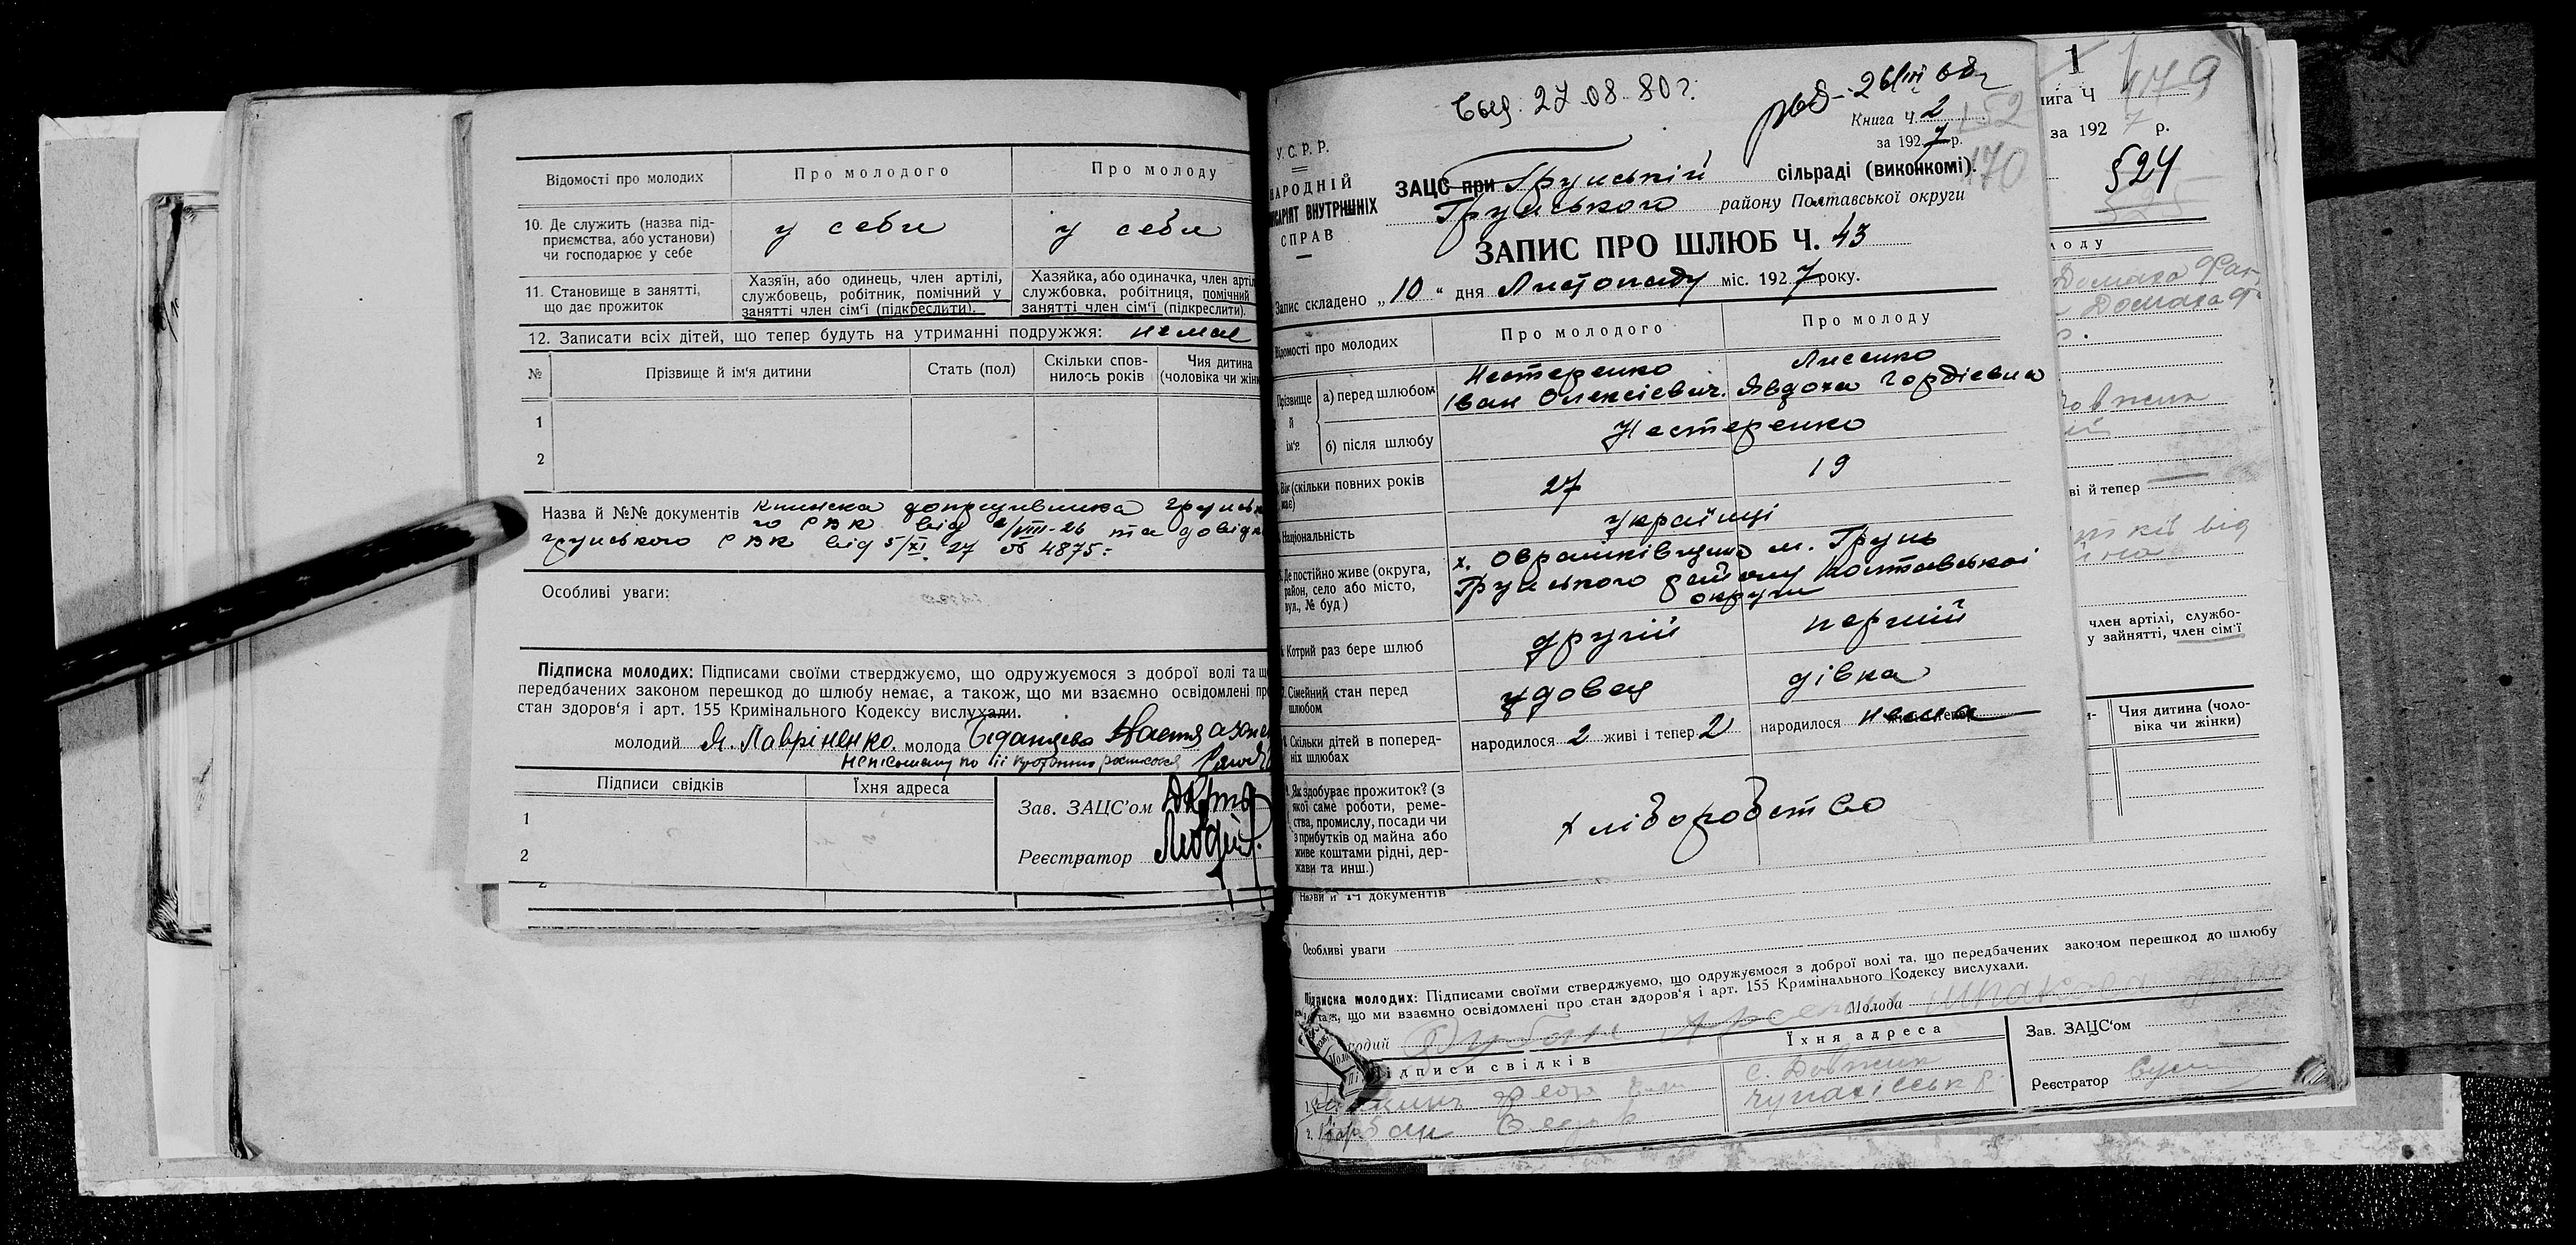 Відомості про молодих
Про молодого
Про молоду
10. Де служить (назва під-
приємства, або установи)
чи господарює у себе
у себе
у себе
11. Становище в занятті,
що дає прожиток
Хазяїн, або одинець, член артілі,
службовець, робітник, помічний у
занятті член сім'ї (підкреслити).
Хазяйка, або одиначка, член артіл
службовка, робітниця, помічний
занятті член сім'ї (підкреслити).
12. Записати всіх дітей, що тепер будуть на утриманні подружжя: немає
№
Прізвище й ім'я дитини
Стать (пол)
Скільки спов-
нилось років
Чия дитина
(чоловіка чи жінк
1
2
Назва й №№ документів книжка допризивника Грунсько
го РВК від /VIII-26 та довідка
грунського РВК від 5/XI 27 № 4875:
Особливі уваги:
Підписка молодих: Підписами своїми стверджуємо, що одружуємося з доброї волі та що
передбачених законом перешкод до шлюбу немає, а також, що ми взаємно освідомлені про
стан здоров'я і арт. 155 Кримінального Кодексу вислухали.
молодий Я. Лавріненко. молода Настя
Підписи свідків
Їхня адреса
1
2
Зав. ЗАЦС'ом
Реєстратор
27.08.80 г.
Книга Ч. 2
за 1927 р.
152
170
У.С.Р.Р.
НАРОДНІЙ
ІСАРІЯТ ВНУТРІШНІХ
СПРАВ
ЗАЦС при Грунській сільраді (виконкомі).
Грунського району Полтавської округи
ЗАПИС ПРО ШЛЮБ Ч. 43
Запис складено „10“ дня Листопаду міс. 1927 року.
Відомості про молодих
Про молодого
Про молоду
Прізвище
й
ім'я
а) перед шлюбом
Нестеренко
Іван Олексієвич.
Лисенко
Явдоха Гордієвна
б) після шлюбу
Нестеренко
Вік (скільки повних років
має)
27
19
Національність
українці
Де постійно живе (округа,
район, село або місто,
вул., № буд)
х. Овраменківщина м. Грунь
Грунського району полтавської
округи
Котрий раз бере шлюб
другій
первій
Сімейний стан перед
шлюбом
удовец
дівка
Скільки дітей в поперед-
ніх шлюбах
народилося 2 живі і тепер 2
народилося нема
Як здобуває прожиток? (з
якої саме роботи, реме-
ства, промислу, посади чи
з прибутків од майна або
живе коштами рідні, дер-
жави та инш.)
хліборобство
1
нига Ч 179
за 1927 р.
§24
лоду
Домаха
Домаха
ві й тепер
від
член артілі, службо-
у зайнятті, член сім'ї
Чия дитина (чоло-
віка чи жінки)
Назви й №№ документів
Особливі уваги
Підписка молодих: Підписами своїми стверджуємо, що одружуємося з доброї волі та, що передбачених законом перешкод до шлюбу
також, що ми взаємно освідомлені про стан здоров'я і арт. 155 Кримінального Кодексу вислухали.
Молода
Підписи свідків
Їхня адреса
с. Довжик
Зав. ЗАЦС'ом
Реєстратор